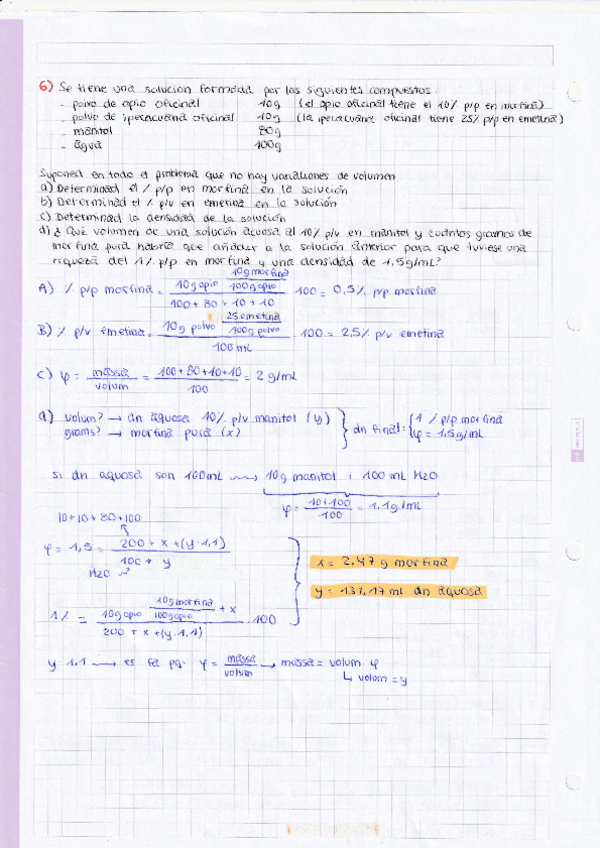 6) Se tiene una solución formada por los siguientes compuestos.
- polvo de opio oficinal 10g (el opio oficinal tiene el 10% p/p en morfina)
- polvo de iperacuana oficinal 10g (la iperacuana oficinal tiene 25% p/p en emetina)
- manitol 80g
- agua 100g
Suponed en todo el problema que no hay variaciones de volumen
a) Determinad el % p/p en morfina en la solución
b) Determinad el % p/v en emetina en la solución
c) Determinad la densidad de la solución
d) ¿Qué volumen de una solución acuosa al 10% p/v en manitol y cuántos gramos de
morfina pura habría que añadir a la solución anterior para que tuviese una
riqueza del 1% p/p en morfina y una densidad de 1,5g/mL?
A) % p/p morfina = (10g opio · 10g morfina / 100g opio) / (100 + 80 + 10 + 10) · 100 = 0,5% p/p morfina
B) % p/v emetina = (10g polvo · 25 emetina / 100g polvo) / 100 mL · 100 = 2,5% p/v emetina
c) φ = massa / volum = (100+80+10+10) / 100 = 2 g/mL
d) volum? → dn aquosa 10% p/v manitol (y)
grams? → morfina pura (x)
dn final: { 1% p/p morfina
φ = 1,5g/mL
si dn aquosa son 100mL ⟿ 10g manitol i 100mL H2O
φ = (10+100) / 100 = 1,1g/mL
10+10+80+100
φ = 1,5 = (200 + x + (y·1,1)) / (100 + y)
H2O
x = 2,47 g morfina
y = 131,17 ml dn aquosa
1% = (10g opio · 10g morfina / 100g opio + x) / (200 + x + (y·1,1)) · 100
y 1,1 → es fa pq. φ = massa / volum → massa = volum · φ
↳ volum = y